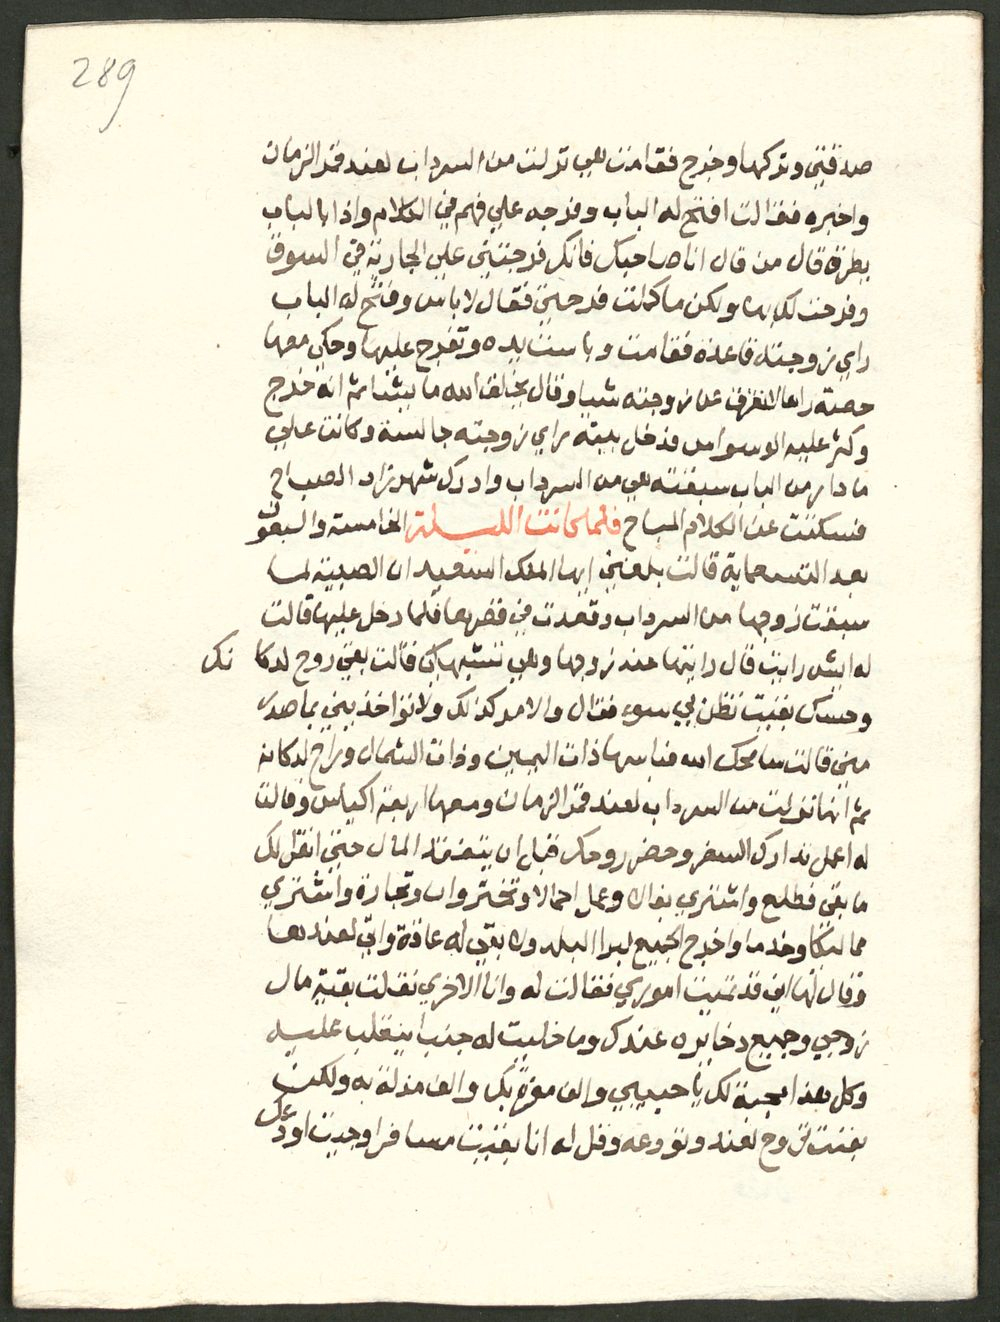 289
صدقتني وتركها وخرج فقامت هي نزلت من السرداب لعند قمر الزمان
واخبره فقالت افتح له الباب وفرجه علي فهم في الكلام واذا بالباب
يطرق قال من قال انا صاحبك فانك فرجتني علي الجارية في السوق
وفرحت لك بها ولكن ما كملت فرحتي فقال لا باس وفتح له الباب
راي زوجته قاعده فقامت وباست يده وتفرج عليها وحكي معها
حصته راها لا تفرق عن زوجته شيا وقال يخلق الله ما يشا ثم انه خرج
وكثر عليه الوسواس فدخل بيته راي زوجته جالسة وكانت علي
ما دار من الباب سبقته هي من السرداب وادرك شهرزاد الصباح
فسكتت عن الكلام المباح فلما كانت الليلة الخامسة والسبعون
بعد التسعماية قالت بلغني ايها الملك السعيد ان الصبية لما
سبقت زوجها من السرداب وقعدت في قصرها فلما دخل عليها قالت
له ايش رايت قال رايتها عند زوجها وهي تشبهك قالت بقي روح لدكانك
وحسك بقيت تظن بي سوء فقال والامر كذلك ولا تواخذيني بما صدر
مني قالت سامحك الله فباسها ذات اليمين وذات الشمال وراح لدكانه
ثم انها نزلت من السرداب لعند قمر الزمان ومعها اربعة اكياس وقالت
له اعمل تدارك السفر وحضر روحك قبل ان يتفقد المال حتي انقل لك
ما بقي فطلع واشتري بغال وعمل احمالا وتختروان وتجارة واشتري
مماليكا وخدما واخرج الجميع لبرا البلد ولا بقي له عاقة واتي لعندها
وقال لها اني قد تميت اموري فقالت له وانا الاخري نقلت بقية مال
زوجي وجميع دخايره عندك وما خليت له جنب ينقلب عليه
وكل هذا محبة لك يا حبيبي والف مرة بك والف مذلة به ولكن
بقيت تروح لعنده وتودعه وقل له انا بقيت مسافر وجيت اودعك